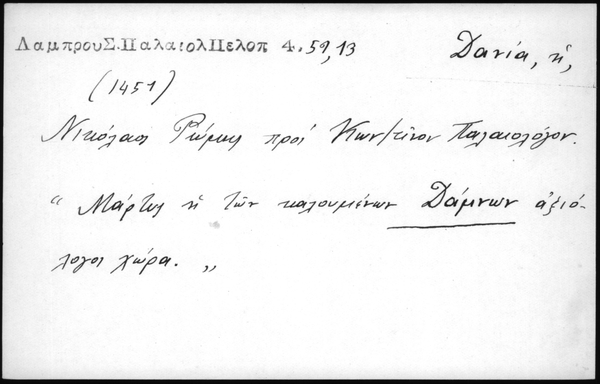 ΛαμπρουΣ.ΠαλαιολΠελοπ 4. 59,13 Δανία, ἡ,
(1451)
Νικόλαος Ρώμης πρὸς Κων/τῖνον Παλαιολόγον.
“ Μάρτυς ἡ τῶν καλουμένων Δάμνων ἀξιό-
λογος χώρα. „